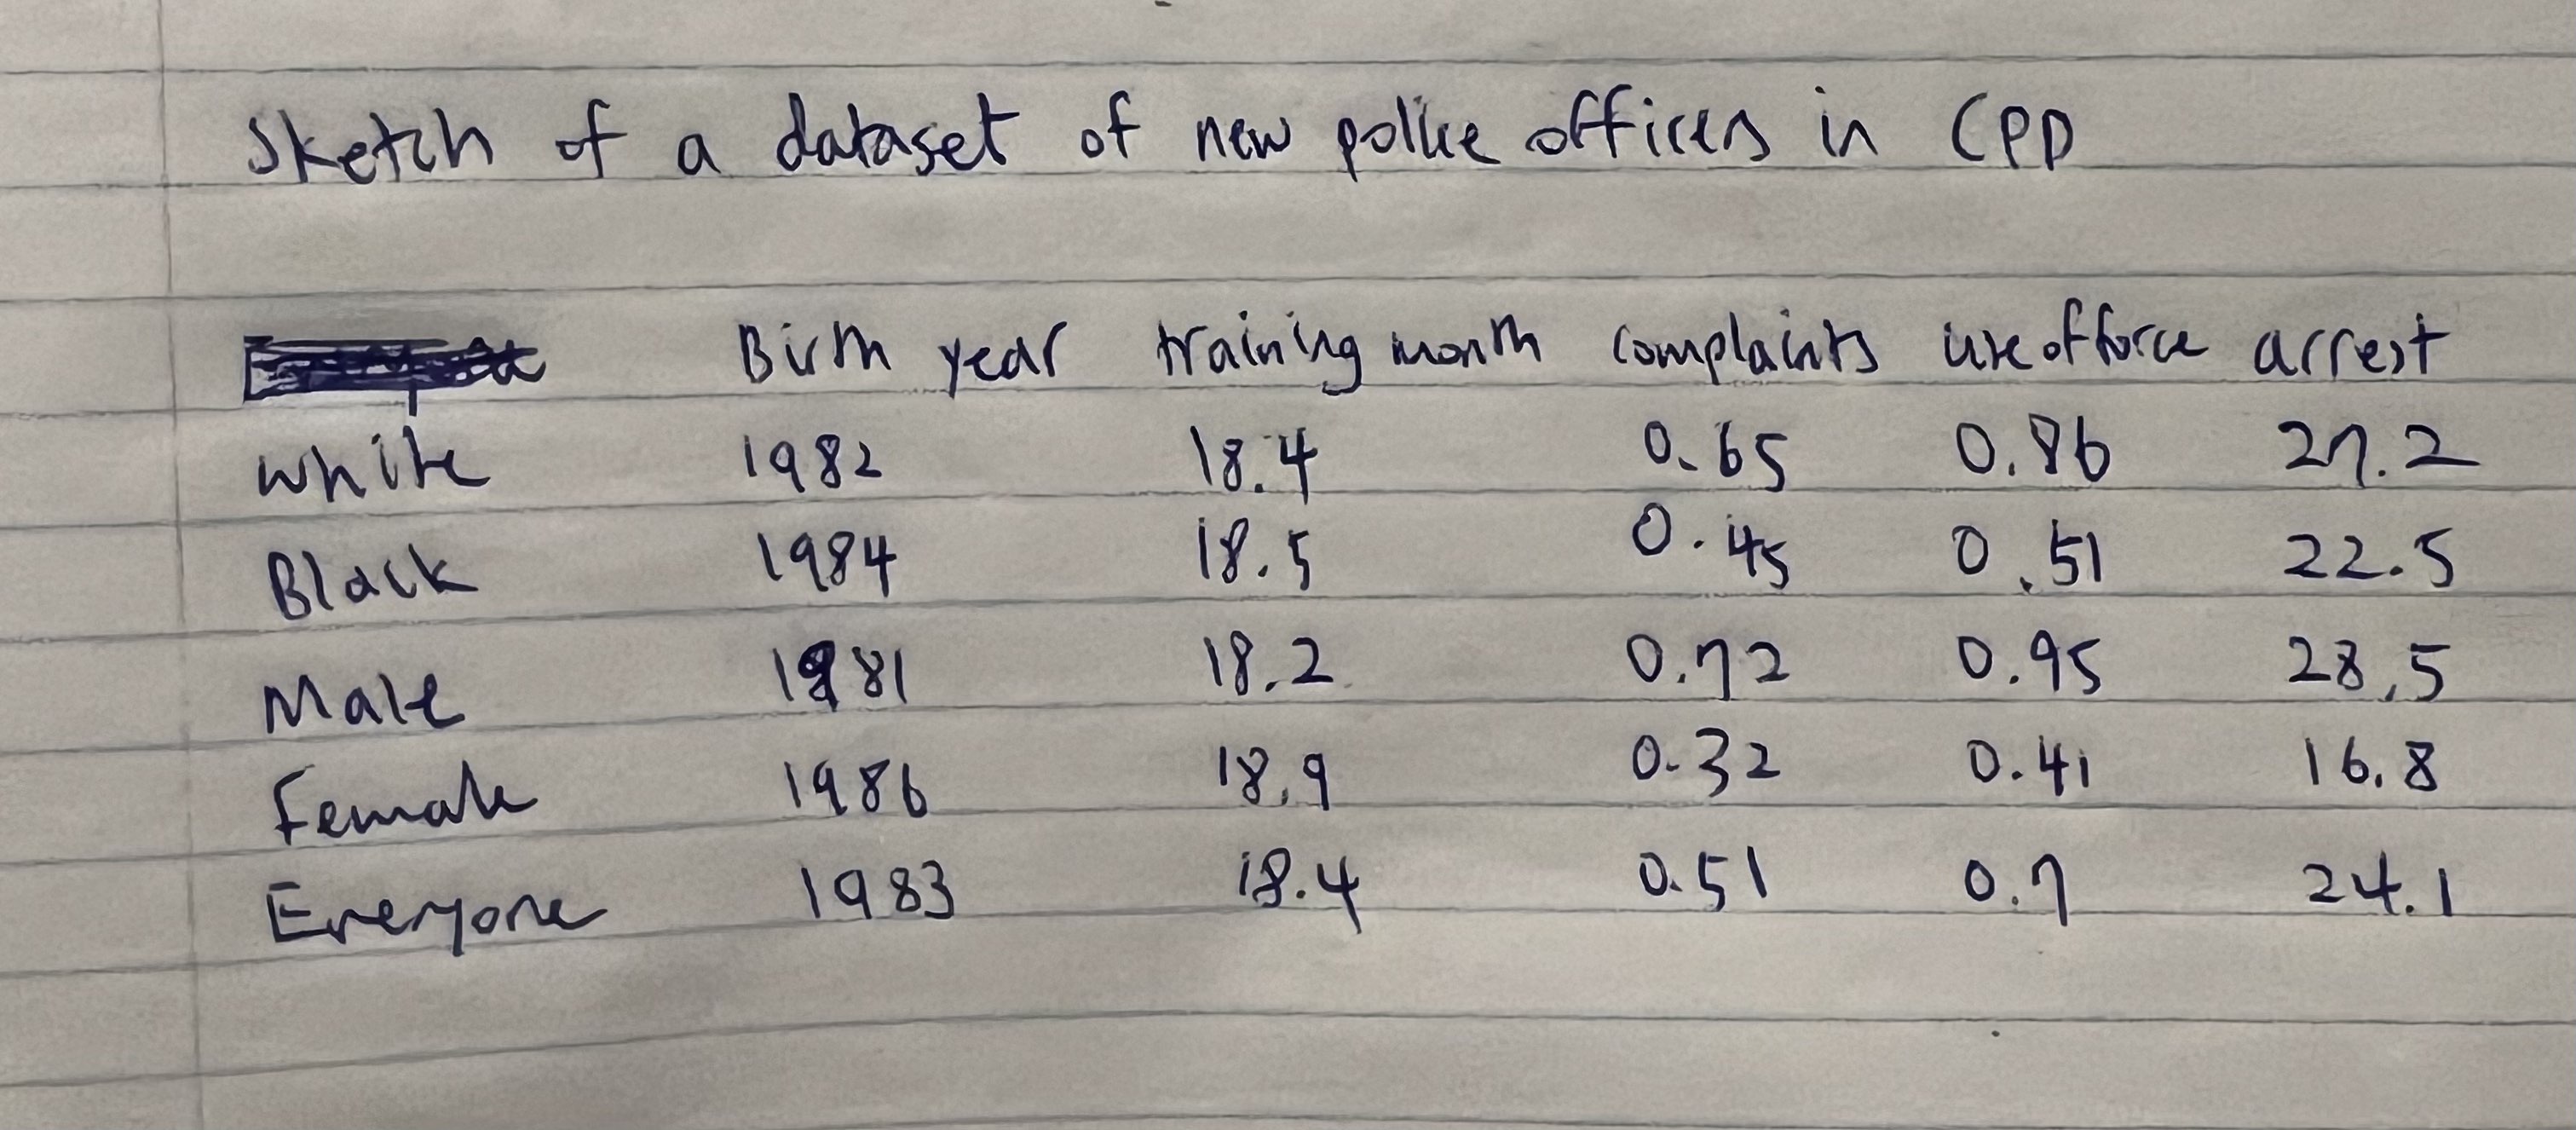 Sketch of a dataset of new police officers in CPD
Birth year training month complaints use of force arrest
White 1982 18.4 0.65 0.86 27.2
Black 1984 18.5 0.45 0.51 22.5
Male 1981 18.2 0.72 0.95 28.5
Female 1986 18.9 0.32 0.41 16.8
Everyone 1983 18.4 0.51 0.7 24.1